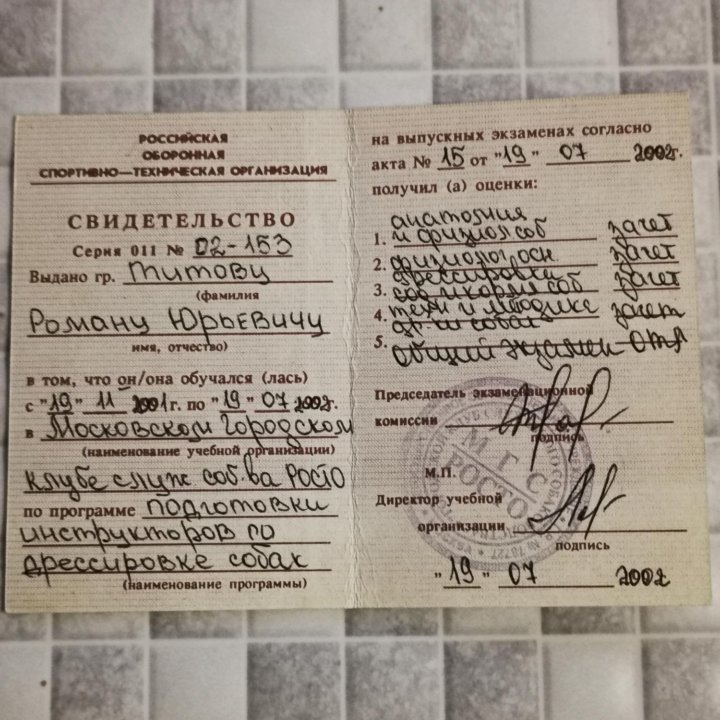 РОССИЙСКАЯ
ОБОРОННАЯ
СПОРТИВНО—ТЕХНИЧЕСКАЯ ОРГАНИЗАЦИЯ
СВИДЕТЕЛЬСТВО
Серия 011 № 02-153
Выдано гр. Титову
(фамилия
Роману Юрьевичу
имя, отчество)
в том, что он/она обучался (лась)
с "19" 11 2001г. по "19" 07 2002г.
в Московском Городском
(наименование учебной организации)
клубе служ соб-ва РОСТО
по программе подготовки
инструкторов по
дрессировке собак
(наименование программы)
на выпускных экзаменах согласно
акта № 15 от "19" 07 2002г.
получил (а) оценки:
анатомия
1. и физиол соб зачет
2. физиолог осн зачет
дрессировки
3. сод и корм соб зачет
4. техн и методике зачет
др-ки собак
5. общий экзамен - отл
Председатель экзаменационной
комиссии
подпись
М.П.
МГС
РОСТО
Директор учебной
организации
подпись
"19" 07 2002